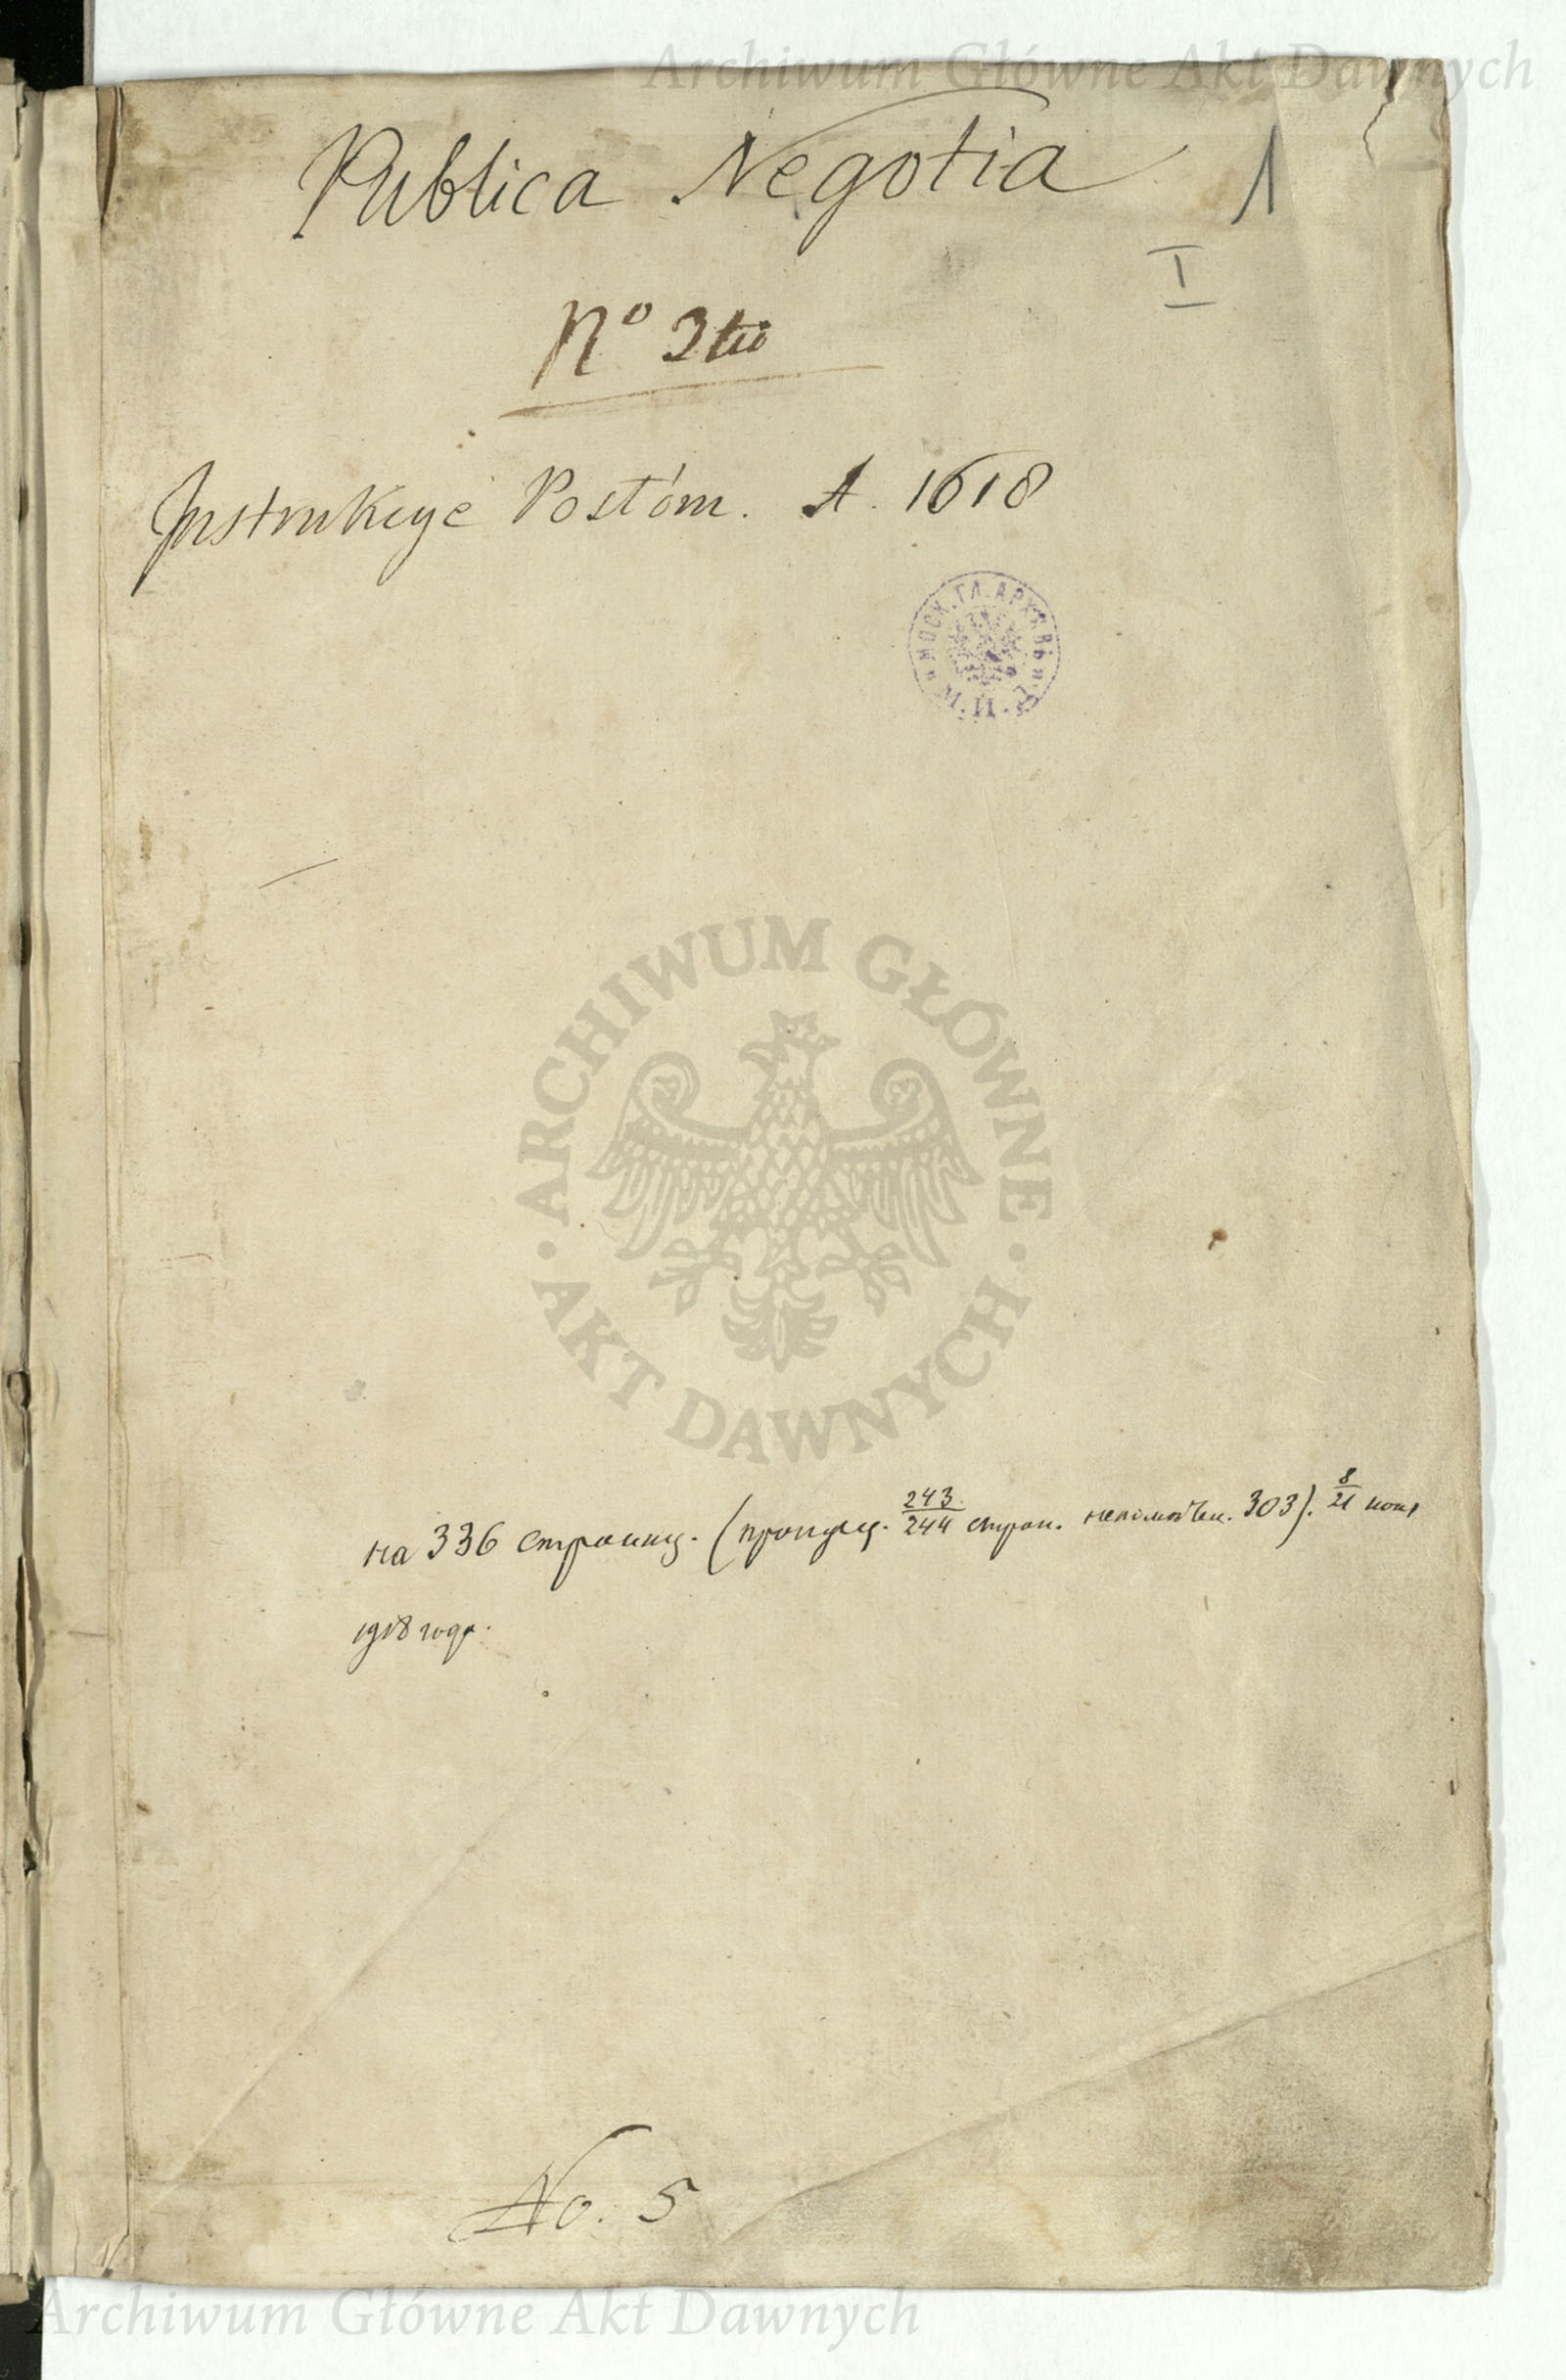 Archiwum Główne Akt Dawnych
Publica Negotia
1
I
Nº 3tio
Instrukcye Posłóm. A. 1618
МОСК. ГЛ. АРХИВЪ М. И. Д.
ARCHIWUM GŁÓWNE
AKT DAWNYCH
на 336 страниц. (пропущ. 243/244 стран. 303). 8/21
1918 года.
No. 5
Archiwum Główne Akt Dawnych